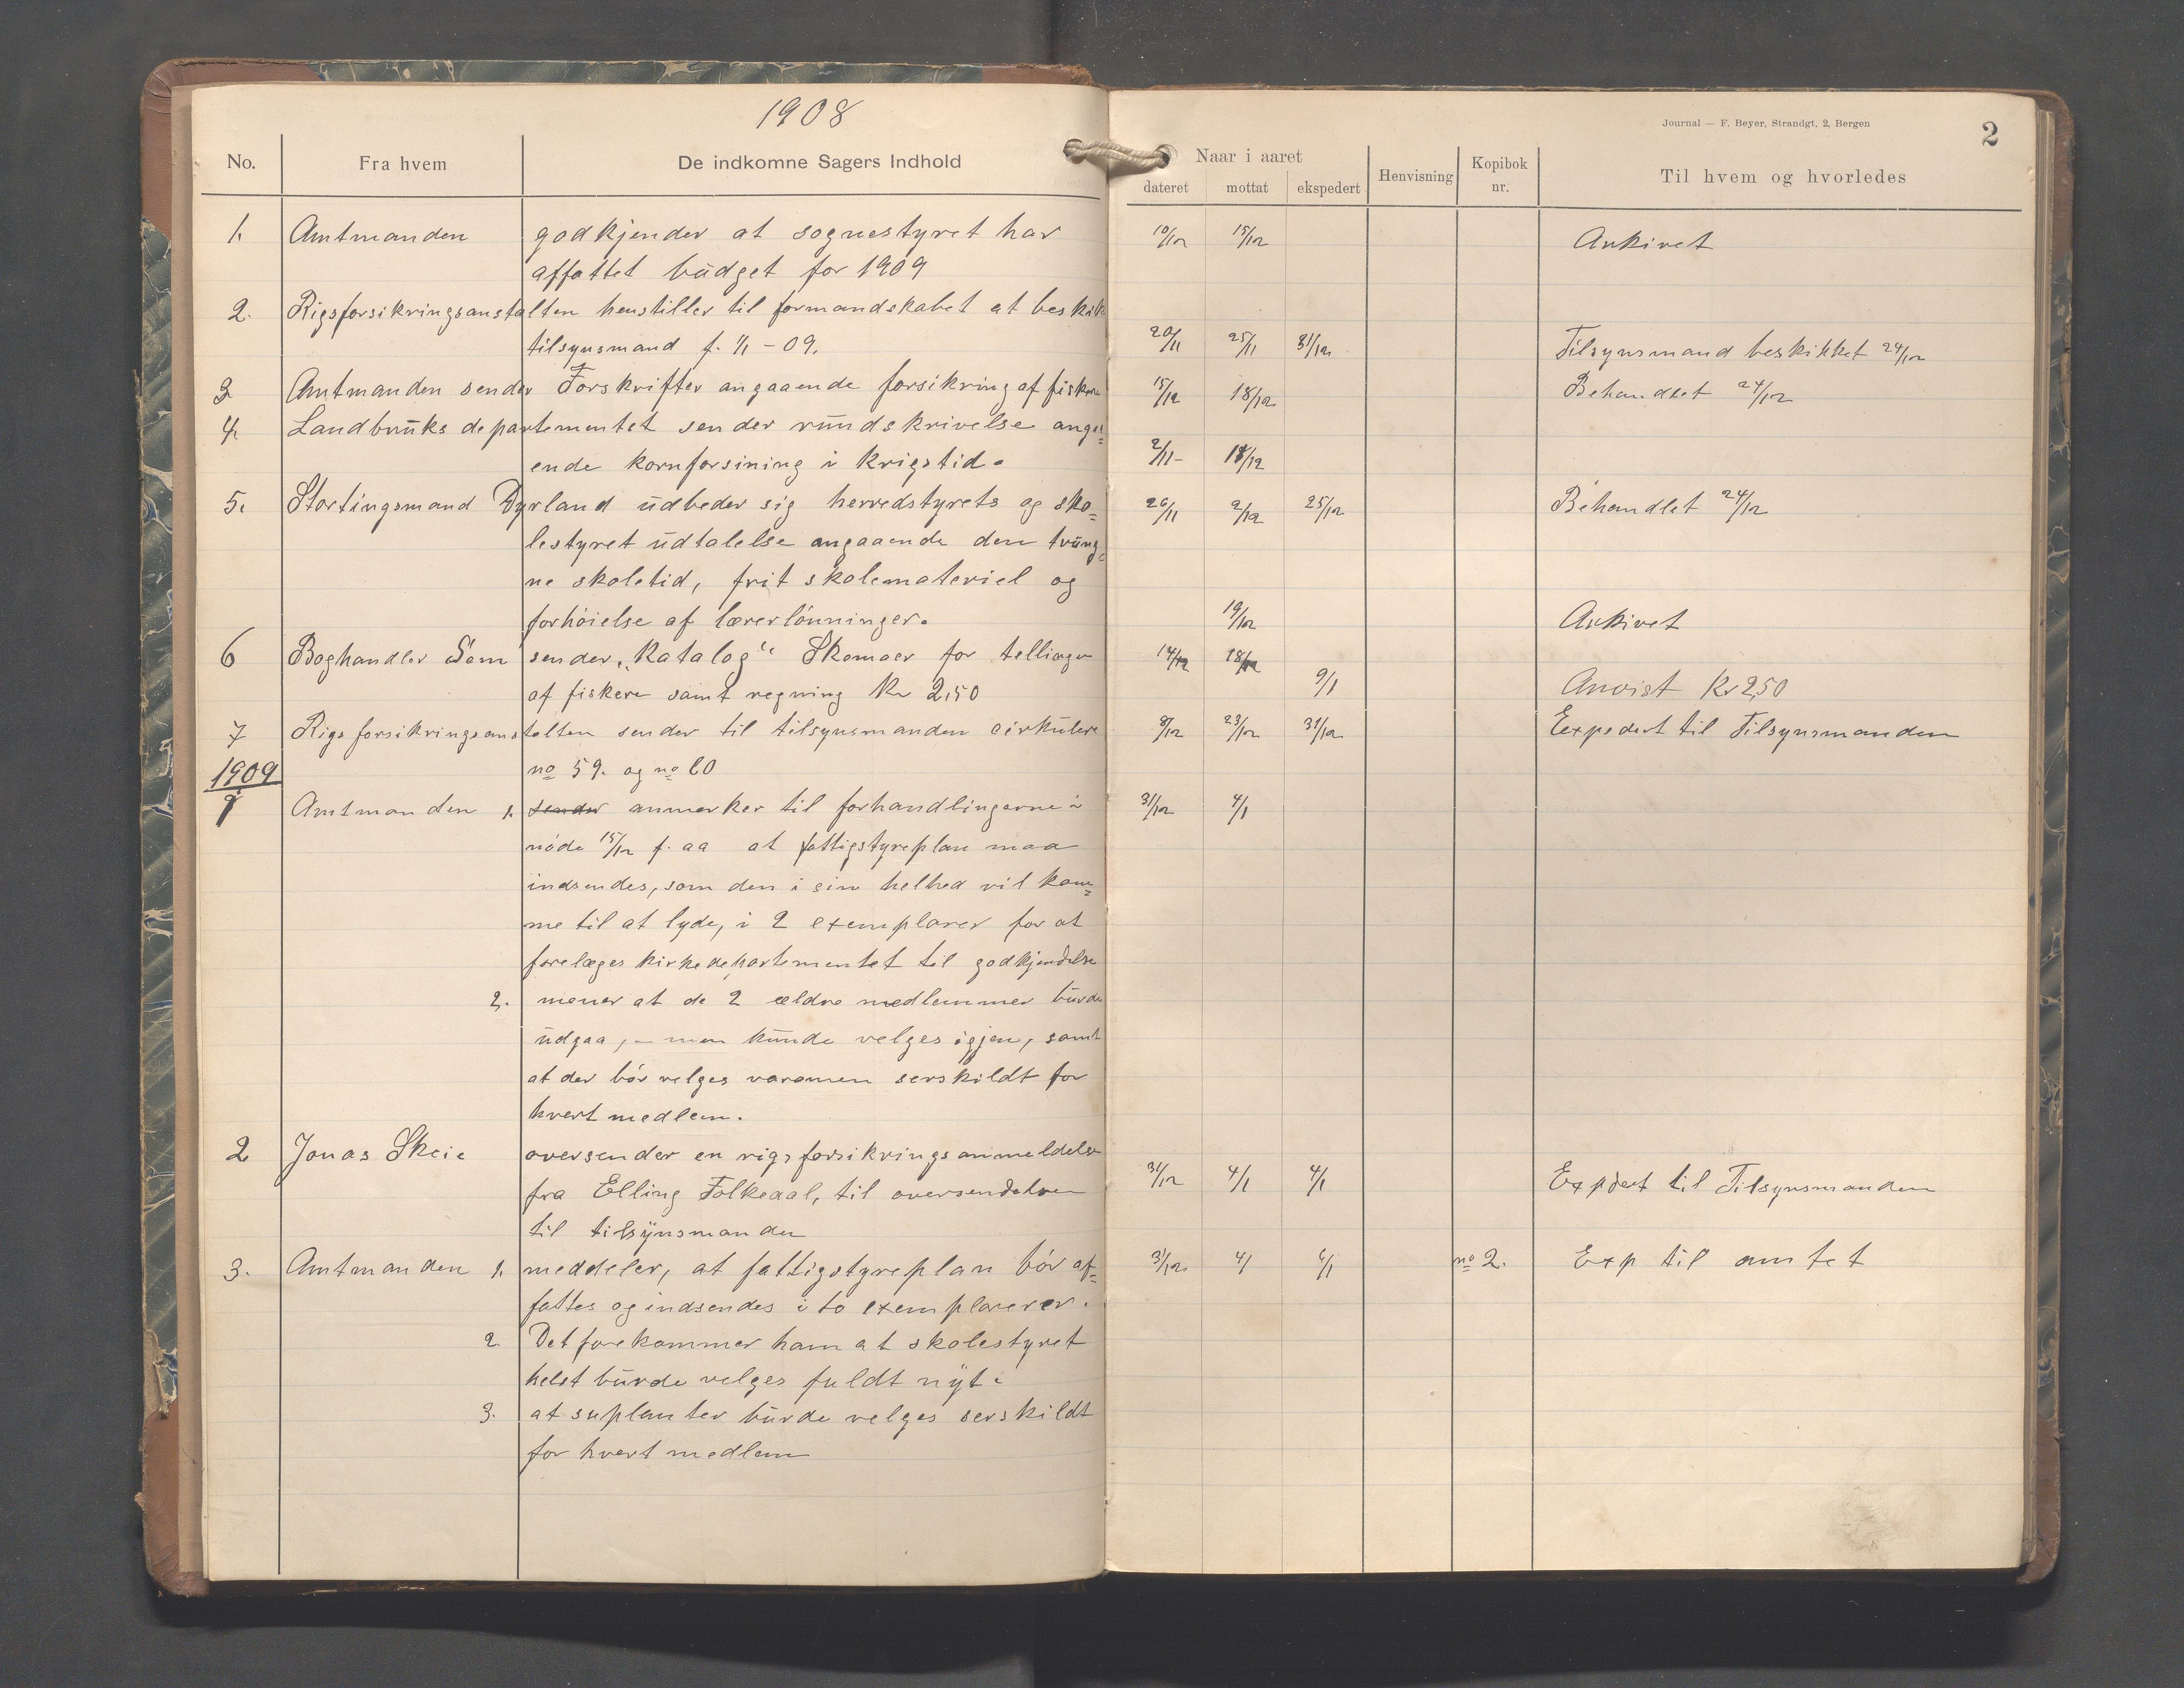 1908
No. Fra hvem De indkomne Sagers Indhold
1. Amtmanden godkjender at sognestyret har
affattet budget for 1909
2. Rigsforsikringsanstalten henstiller til formandskabet at beskikke
tilsynsmand f. 1/1 - 09.
3 Amtmanden sender Forskrifter angaaende forsikring af fiskere
4. Landbruksdepartementet sender rundskrivelse anga=
ende kornforsining i krigstid.
5. Stortingsmand Dyrland udbeder sig herredstyrets og sko=
lestyret udtalelse angaaende den tvung=
ne skoletid, frit skolemateriel og
forhöielse af lærerlönninger.
6 Boghandler Sem sender „Katalog“ Skemaer for tellinger
af fiskere samt regning Kr 2,50
7 Rigsforsikringsanstalten sender til tilsynsmanden cirkulere
no 59. og no 60
1909
1 Amtmanden 1. sender anmerker til forhandlingerne i
möde 15/12 f. aa at fattigstyreplan maa
indsendes, som den i sin helhed vil kom=
me til at lyde, i 2 exemplarer for at
forelæges kirkedepartementet til godkjendelse
2. mener at de 2 ældre medlemmer burde
udgaa, - men kunde velges igjen, samt
at der bör velges varamen serskildt for
hvert medlem.
2 Jonas Skeie oversender en rigsforsikringsanmeldelse
fra Elling Folkedal, til oversendelse
til tilsynsmanden
3. Amtmanden 1. meddeler, at fattigstyreplan bör af=
fattes og indsendes i to exemplarerer.
2 Det forekommer ham at skolestyret
helst burde velges fuldt nyt.
3. at suplanter burde velges serskildt
for hvert medlem
Journal — F. Beyer, Strandgt. 2, Bergen
2
Naar i aaret
dateret mottat ekspedert Henvisning Kopibok nr. Til hvem og hvorledes
10/12 15/12 Arkivet
20/11 25/11 31/12 Tilsynsmand beskikket 24/12
15/12 18/12 Behandlet 24/12
2/11- 18/12
26/11 2/12 25/12 Behandlet 24/12
19/12 Arkivet
14/12 18/12
9/1 Anvist Kr 2,50
8/12 23/12 31/12 Expedert til Tilsynsmanden
31/12 4/1
31/12 4/1 4/1 Expdert til Tilsynsmanden
31/12 4/ 6/1 no 2. Exp til amtet